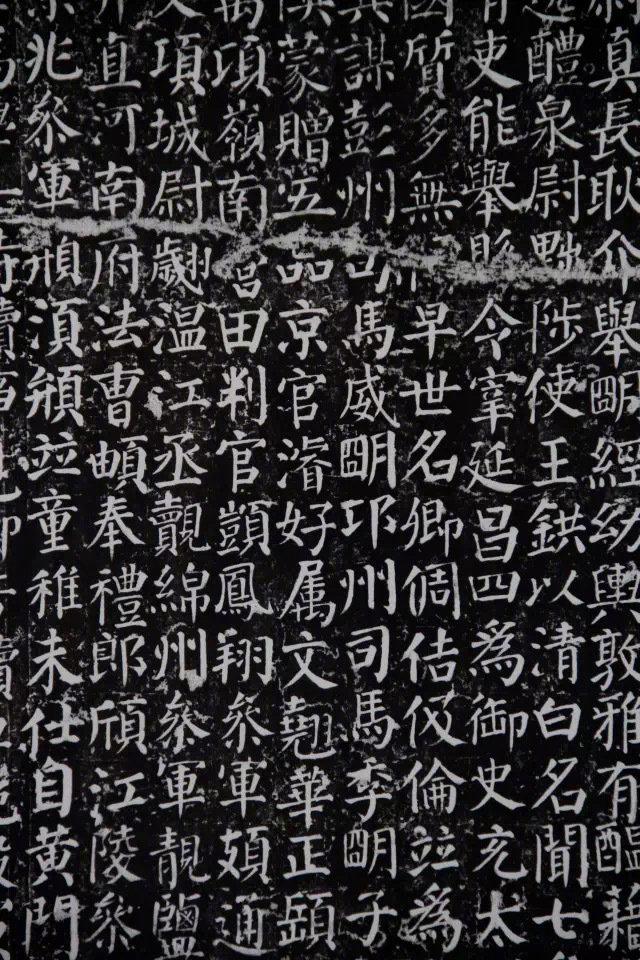 真長耿介舉眀經幼輿敦雅有醞藉
醴泉尉黜陟使王鉷以清白名聞七
吏能舉縣令宰延昌四為御史充太
國質多無早世名卿倜佶伋倫竝為
謀彭州司馬威眀邛州司馬季眀子
蒙贈五品京官濬好屬文翹華正頣
頂嶺南營田判官顗鳳翔叅軍頍通
項城尉翽温江丞覿綿州叅軍靚鹽
直河南府法曹頔奉禮郎頎江陵叅
兆叅軍須竝童稚未仕自黃門